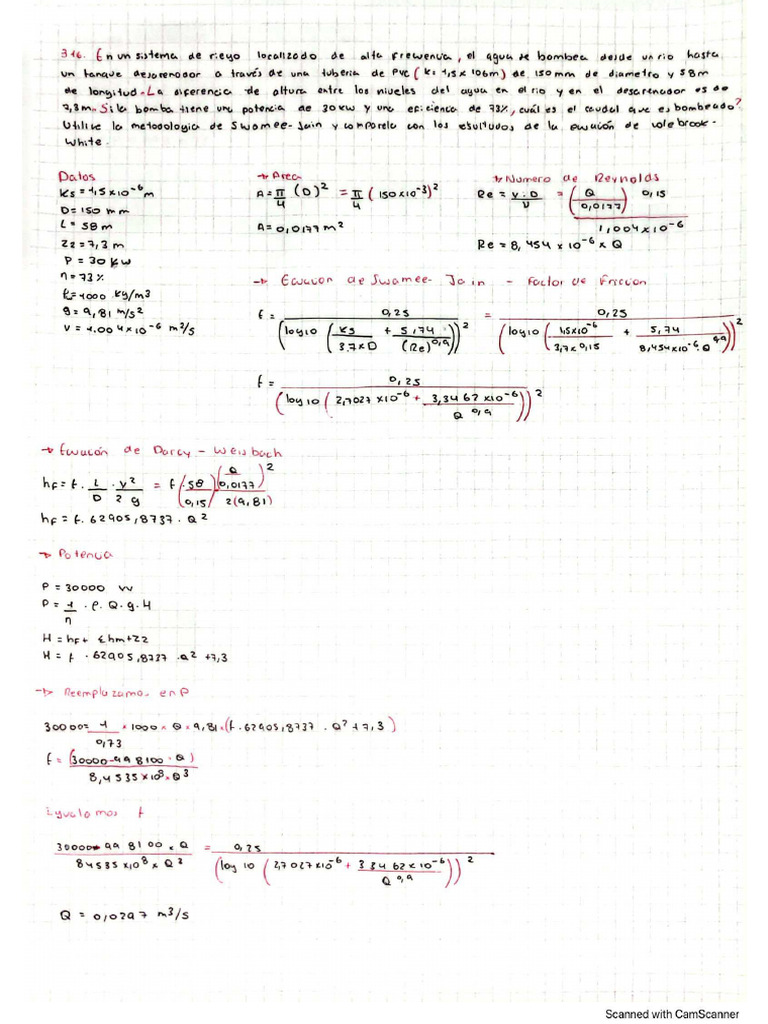 3.16. En un sistema de riego localizado de alta frewencia, el agua se bombea desde un rio hasta
un tanque desarenador a través de una tuberia de PVC (ks 1,5 x 106m) de 150mm de diametro y 58m
de longitud. La diferencia de altura entre los niveles del agua en el rio y en el desarenador es de
7,3m. Si la bomba tiene una potencia de 30kW y una eficiencia de 73%, cuál es el caudal que es bombeado?
Utilice la metodologia de Swamee-Jain y comparela con los resultados de la ewación de Colebrook-
White.
Datos
Ks = 1,5x10^-6 m
D = 150 mm
L = 58 m
Z2 = 7,3 m
P = 30 kW
η = 73 %
ρ = 1000 kg/m3
g = 9,81 m/s²
V = 1.004 x10^-6 m²/s
→ Area
A = π/4 (D)² = π/4 (150x10^-3)²
A = 0,0177 m²
→ Numero de Reynolds
Re = V·D/ν = (Q/0,0177) 0,15 / 1,004x10^-6
Re = 8,454 x 10^-6 x Q
→ Ewacion de Swamee-Jain - Factor de Friccion
f = 0,25 / (log10 (Ks/3.7xD + 5,74/(Re)^0,9))² = 0,25 / (log10 (1,5x10^-6/3,7x0,15 + 5,74/8,454x10^-6·Q^0,9))²
f = 0,25 / (log10 (2,7027 x10^-6 + 3,3462x10^-6/Q^0,9))²
→ Ewación de Darcy - Weisbach
hf = f · L/D · V²/2g = f (58/0,15) (Q/0,0177)²/2(9,81)
hf = f. 62905,8737 · Q²
→ Potencia
P = 30000 W
P = 1/η · ρ. Q. g. H
H = hf + Σhm + Z2
H = f · 62905,8737 · Q² + 7,3
→ Reemplazamos en P
30000 = 1/0,73 x 1000 x Q x 9,81 · (f. 62905,8737 · Q² + 7,3)
f = (30000-998100 · Q) / 8,4535x10^8 x Q^3
Igualamos f
30000-998100 x Q / 84535x10^8 x Q^2 = 0,25 / (log 10 (2,7027x10^-6 + 33462x10^-6/Q^0,9))²
Q = 0,0297 m3/s
Scanned with CamScanner